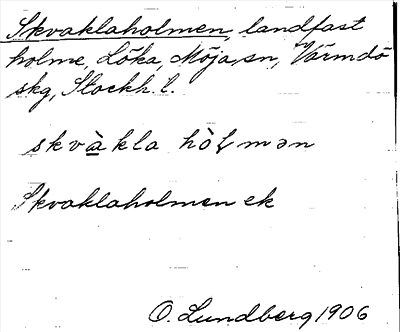 Skvaklaholmen, landfast
holme, Löka, Möja sn, Värmdö
skg, Stockh. l.
skvàkla hòɫmən
Skvaklaholmen ek
O. Lundberg 1906